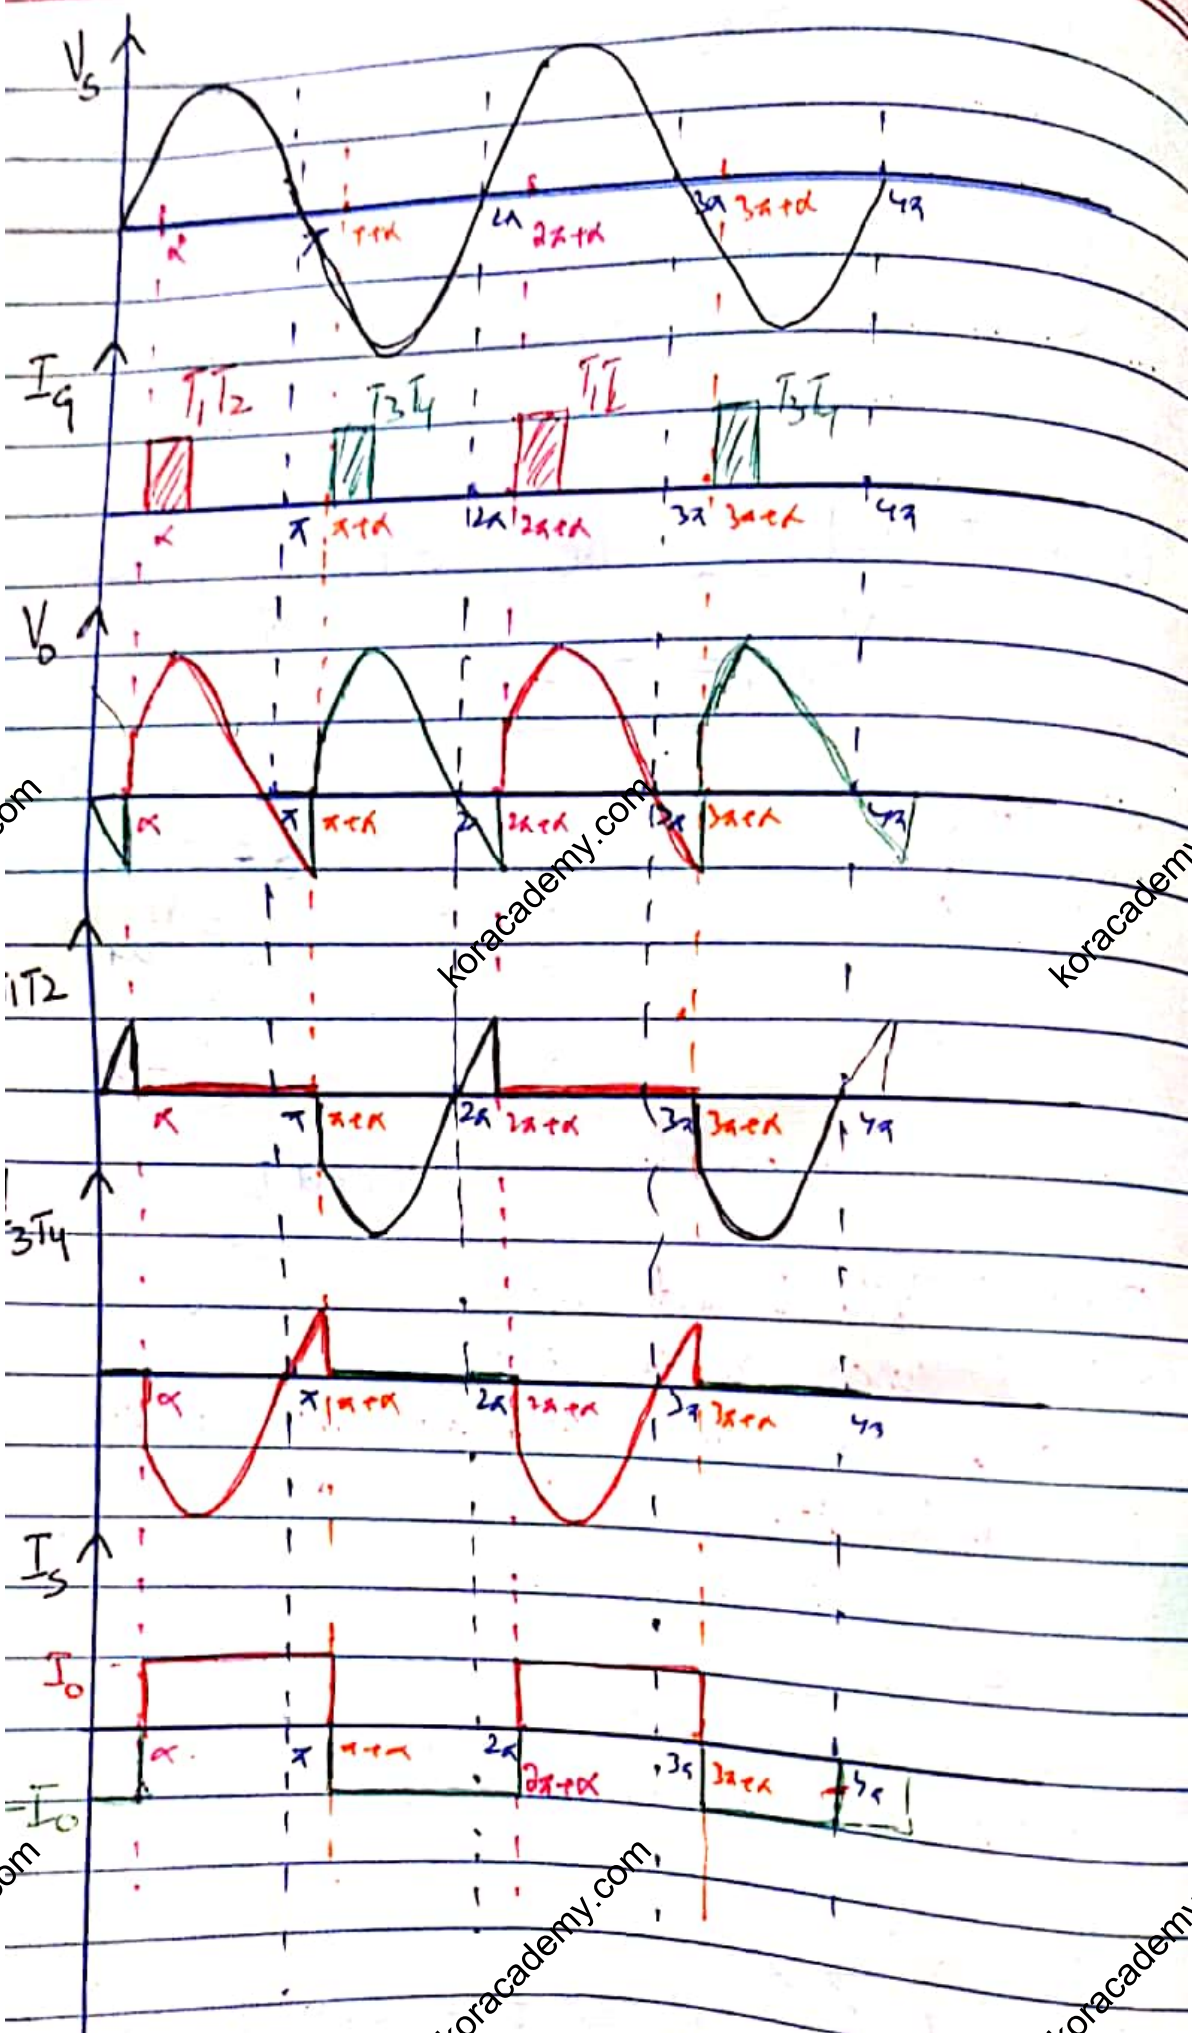 Vs
α π π+α 2π 2π+α 3π 3π+α 4π
Ig
T1T2 T3T4 T1T2 T3T4
α π π+α 2π 2π+α 3π 3π+α 4π
Vo
α π π+α 2π 2π+α 2π 3π+α 4π
koracademy.com
koracademy
1T2
α π π+α 2π 2π+α 3π 3π+α 4π
3T4
α π π+α 2π 2π+α 3π 3π+α 4π
Is
Io
α π π+α 2π 2π+α 3π 3π+α 4π
-Io
koracademy.com
koracademy